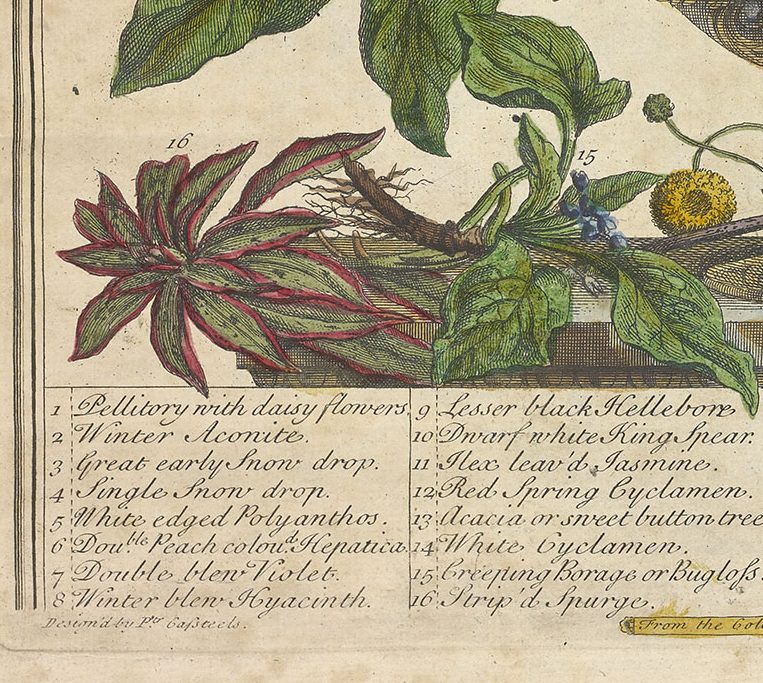 16
15
1 Pellitory with daisy flowers.
2 Winter Aconite.
3 Great early Snow drop.
4 Single Snow drop.
5 White edged Polyanthos.
6 Double Peach coloud. Hepatica.
7 Double blew Violet.
8 Winter blew Hyacinth.
9 Lesser black Hellebore
10 Dwarf white King Spear.
11 Ilex leav'd Jasmine.
12 Red Spring Cyclamen.
13 Acacia or sweet button tree
14 White Cyclamen.
15 Creeping Borage or Bugloſs.
16 Strip'd Spurge.
Design'd by Pr. Caſteels.
From the